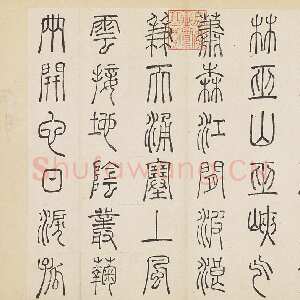 林巫山巫峽气
蕭森江間波浪
兼天涌塞上風
雲接地陰叢菊
兩開它日淚孤
Shufawang.CN